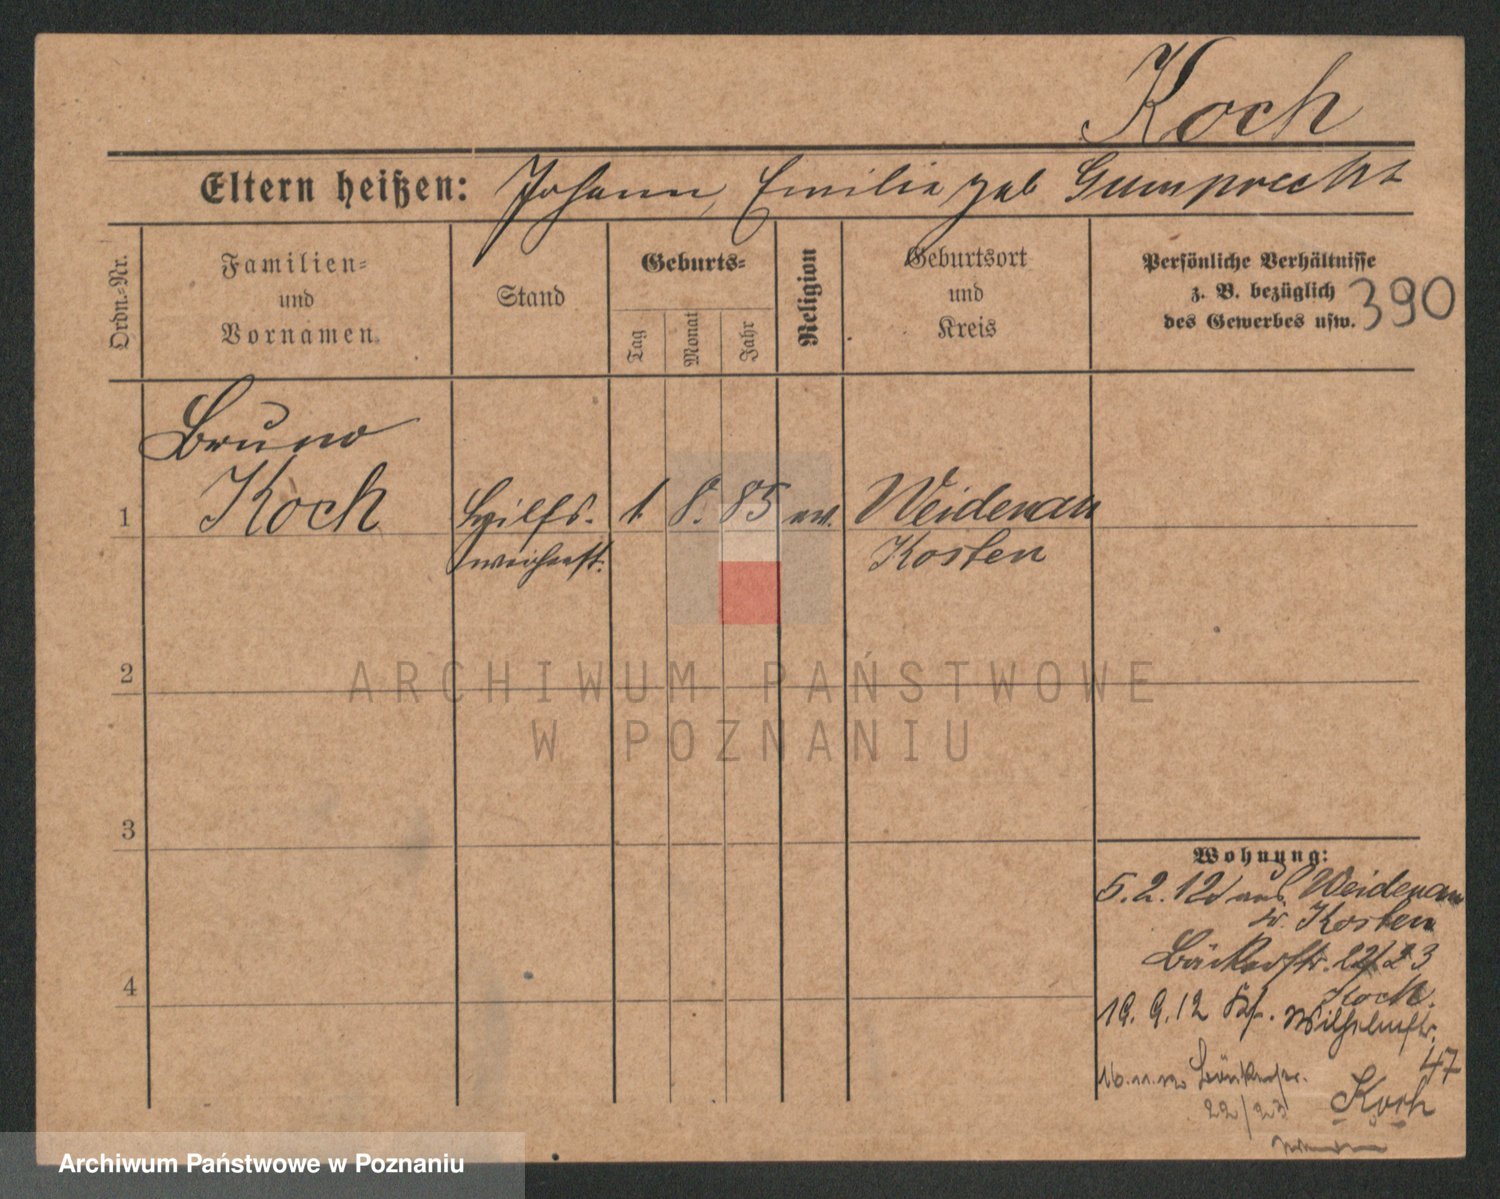 Koch
Eltern heißen: Johann, Emilie geb Gumprecht
Ordn.-Nr.
Familien-
und
Vornamen.
Stand
Geburts-
Tag
Monat
Jahr
Religion
Geburtsort
und
Kreis
Persönliche Verhältnisse
z. B. bezüglich
des Gewerbes usw.
390
Bruno
Koch
1
Hilfs-
1. 8. 85
Weidenau
Kosten
2
ARCHIWUM PAŃSTWOWE
W POZNANIU
3
Wohnung:
5.2.12 aus Weidenau
Kosten
Bäckerstr. 22/23
Koch.
4
19.9.12 Wilhelmstr.
47
Bäckerstr.
22/23
Koch
Archiwum Państwowe w Poznaniu